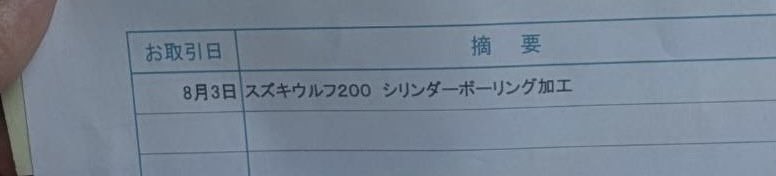 お取引日 摘 要
8月3日 スズキウルフ200 シリンダーボーリング加工